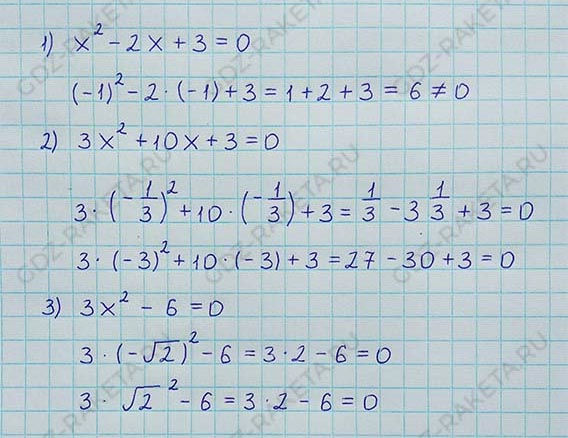 1) x² - 2x + 3 = 0
(-1)² - 2 · (-1) + 3 = 1 + 2 + 3 = 6 ≠ 0
2) 3x² + 10x + 3 = 0
3 · (-1/3)² + 10 · (-1/3) + 3 = 1/3 - 3 1/3 + 3 = 0
3 · (-3)² + 10 · (-3) + 3 = 27 - 30 + 3 = 0
3) 3x² - 6 = 0
3 · (-√2)² - 6 = 3 · 2 - 6 = 0
3 · √2² - 6 = 3 · 2 - 6 = 0
GDZ-RAKETA.RU